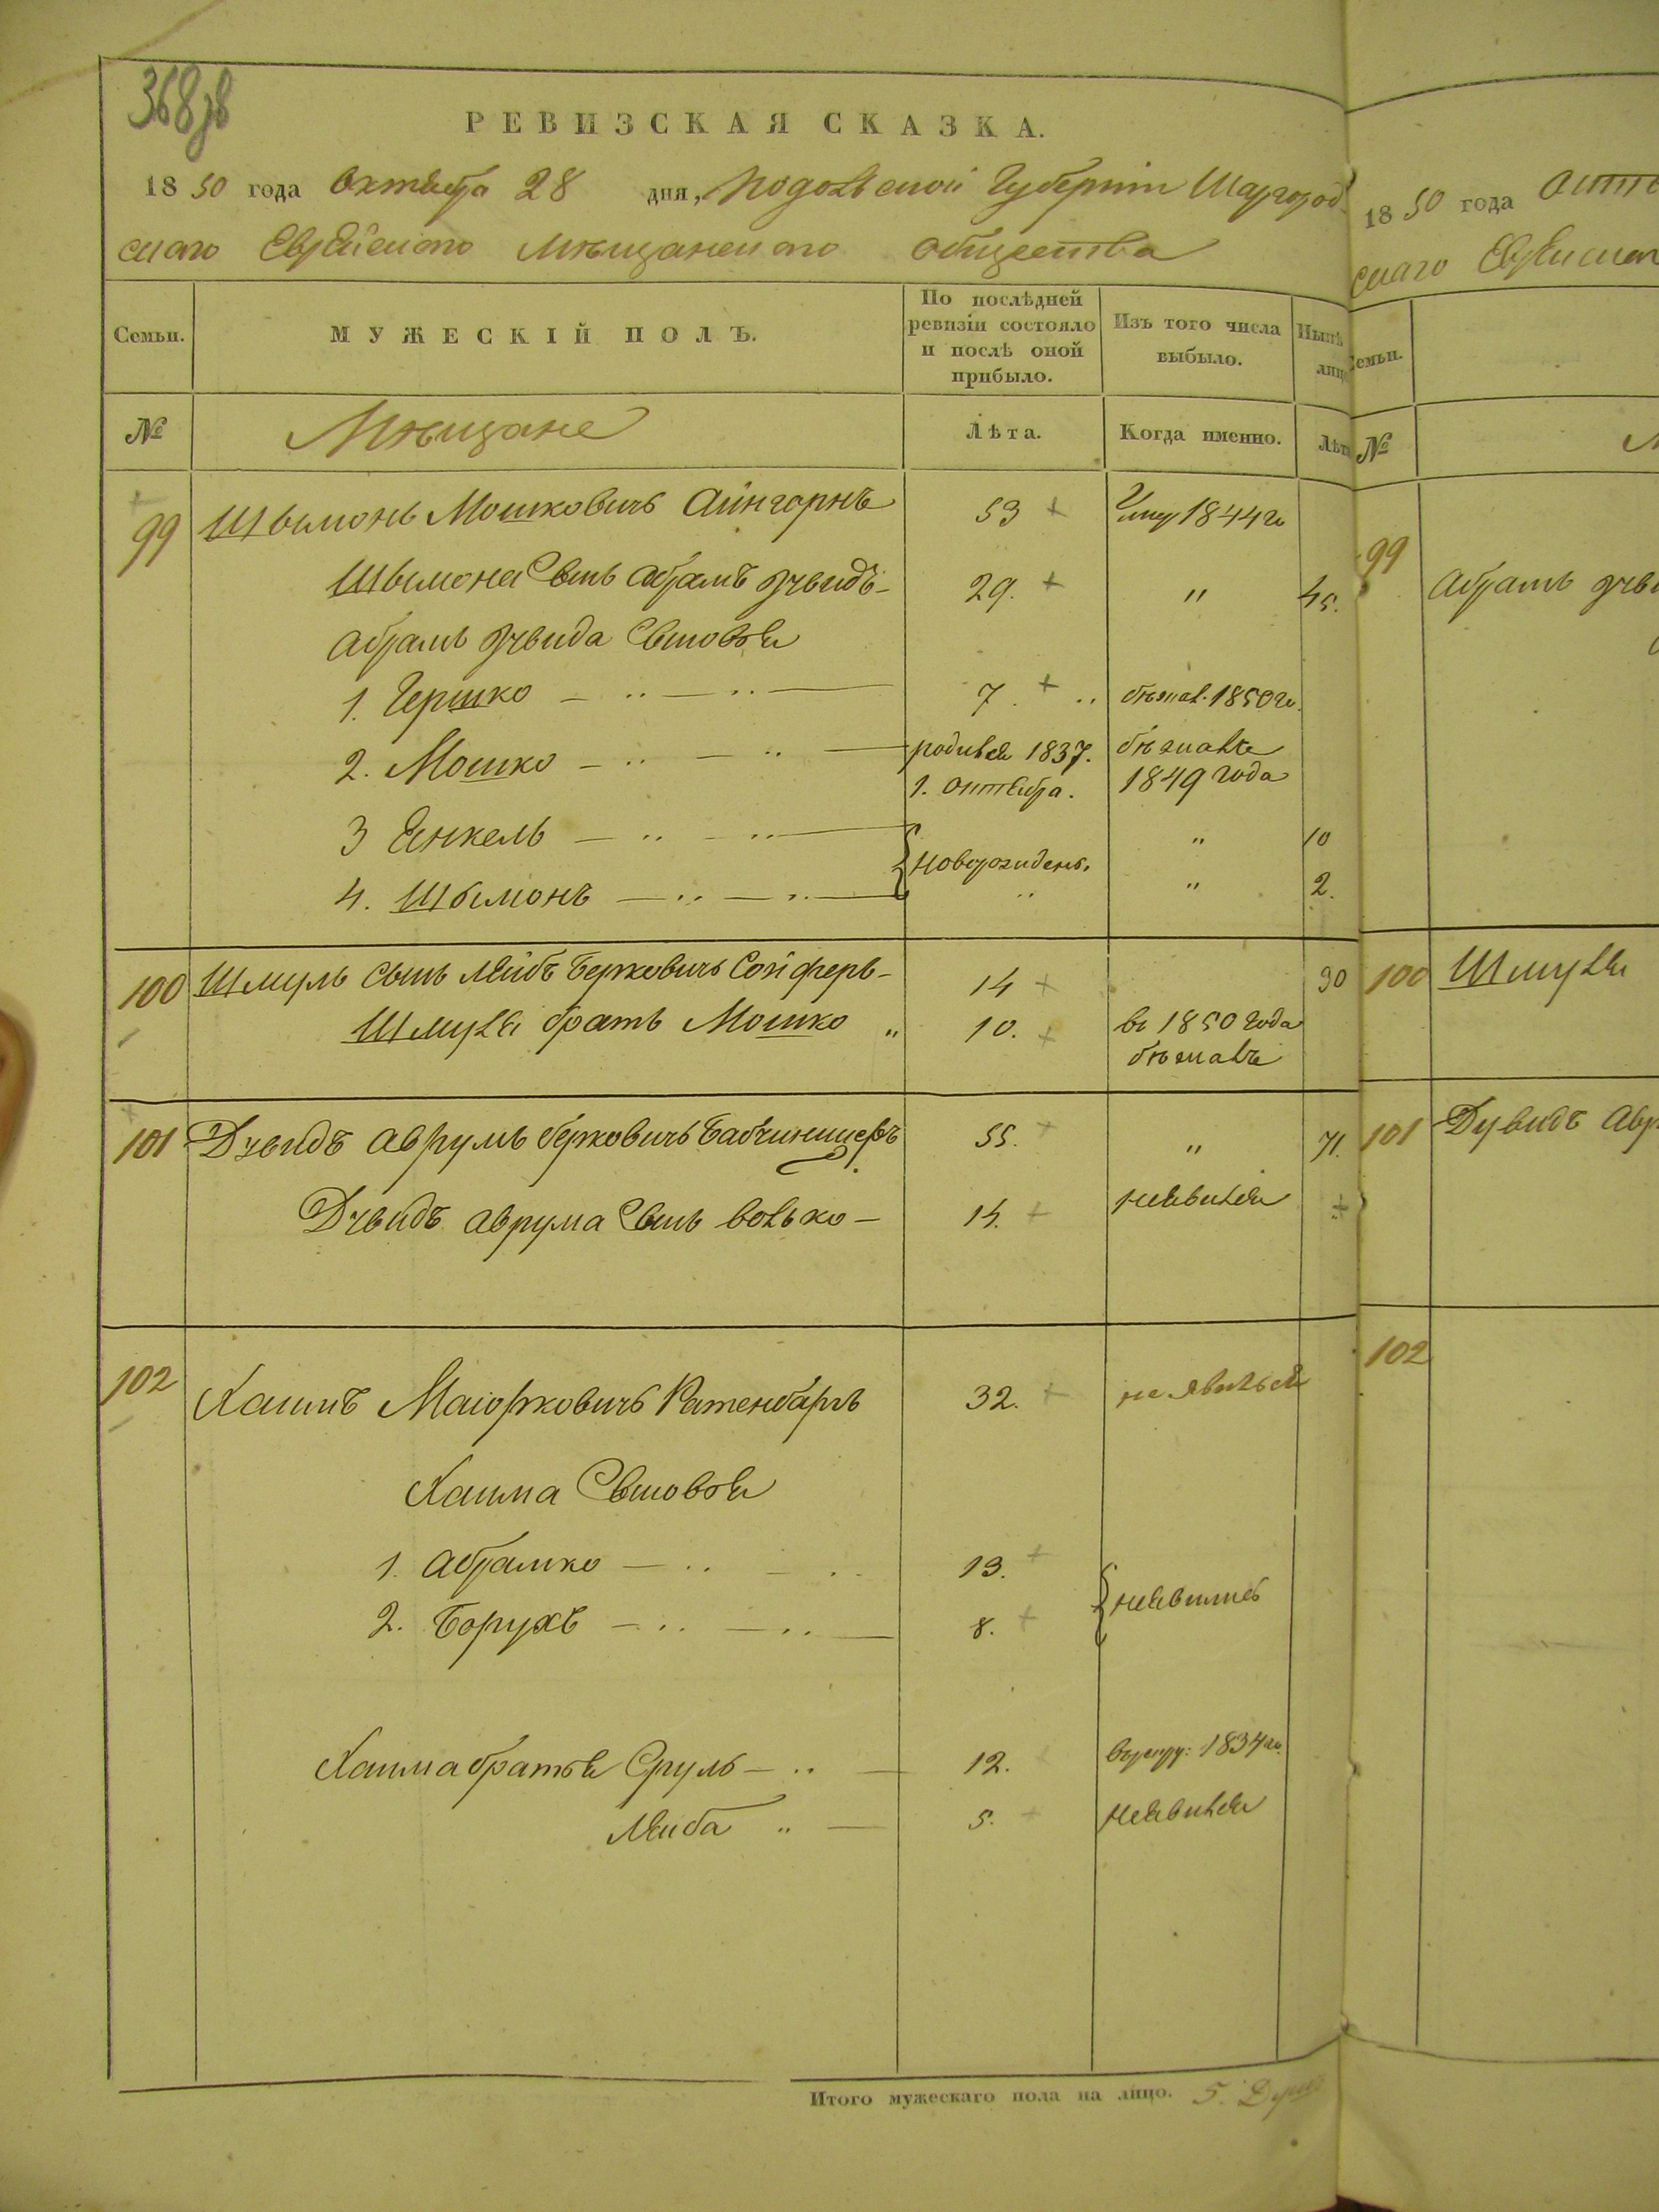 368зв
РЕВИЗСКАЯ СКАЗКА.
1850 года Октября 28 дня, Подольской Губерніи Шаргород
скаго Еврейскаго Мѣщанскаго общества
Семьи. МУЖЕСКІЙ ПОЛЪ. По послѣдней ревизіи состояло и послѣ оной прибыло. Изъ того числа выбыло. Нынѣ лицо
№ Мѣщане Лѣта. Когда именно. Лѣта
99 Шьмонь Мошковичь Айнгорнъ 53 Умер 1844 го
Шьмона Сынъ Абрамъ Дувидъ- 29. " 45.
Абрамъ Дувида Сыновья
1. Гершко — 7. бѣжал. 1850 го.
2. Мошко — родился 1837. 1. Октября. бѣжалъ 1849 года
3 Янкель — новорожден. " 10
4. Шьмонъ — " " 2.
100 Шмуль сынъ Лейбъ Берковичь Сойферъ- 14 30
Шмуля братъ Мошко " 10. въ 1850 года бѣжалъ
101 Дувидъ Аврумъ Берковичь 55. " 71.
Дувидъ Аврума Сынъ Волько — 14. неявился
102 Хаимъ Маіорковичь Ратенбаргъ 32. не явился
Хаима Сыновья
1. Абрамко — 13.
2. Борухъ — 8. неявились
Хаима братья Сруль — 12. врекру: 1834 го.
Лейба " — 5. неявился
Итого мужескаго пола на лицо. 5. Душъ
1850 года Окт
скаго Еврейскаг
Семьи.
№
99 Абрамъ Дуви
100 Шмуля
101 Дувидъ Авр
102